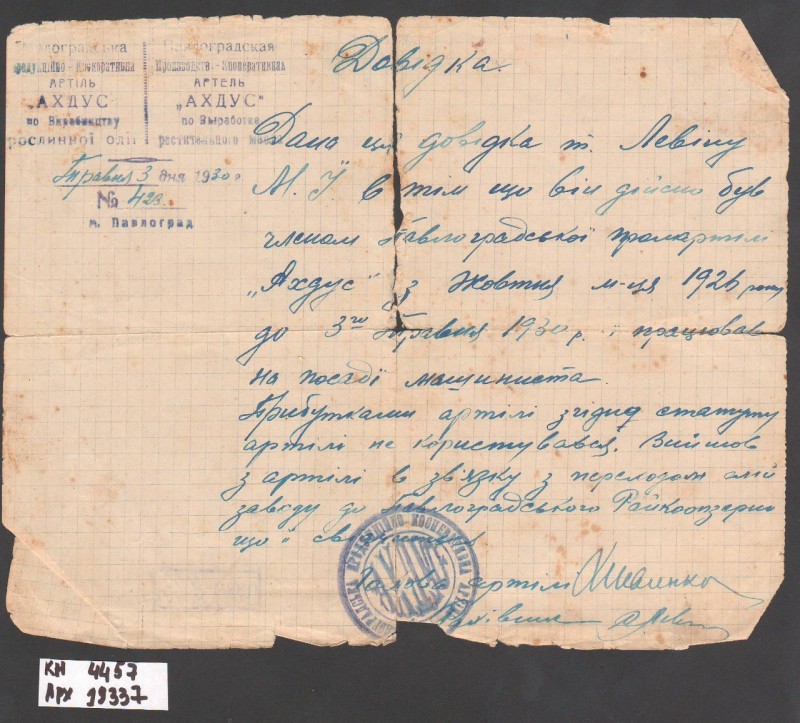 Павлоградська
Продукційно-Кооперативна
АРТІЛЬ
"АХДУС"
по Виробництву
рослинної олії
Павлоградская
Производств.-Кооперативная
АРТЕЛЬ
„АХДУС"
по Выработке
растительного масла
Травня 3 дня 1930 р.
№ 423
м. Павлоград
Довідка.
Дано цю довідка т. Левіну
М. Й. в тім що він дійсно був
членом Павлоградської промартілі
„Ахдус" з Жовтня м-ця 1926 року
до 3го Травня 1930 р. і працював
на посаді машиниста.
Прибутками артілі згідно статуту
артілі не користувався. Вийшов
з артілі в зв'язку з переходом олій
заводу до Павлоградського Райкоопзерно
що і
Голова артілі
КН 4457
Арх 19337